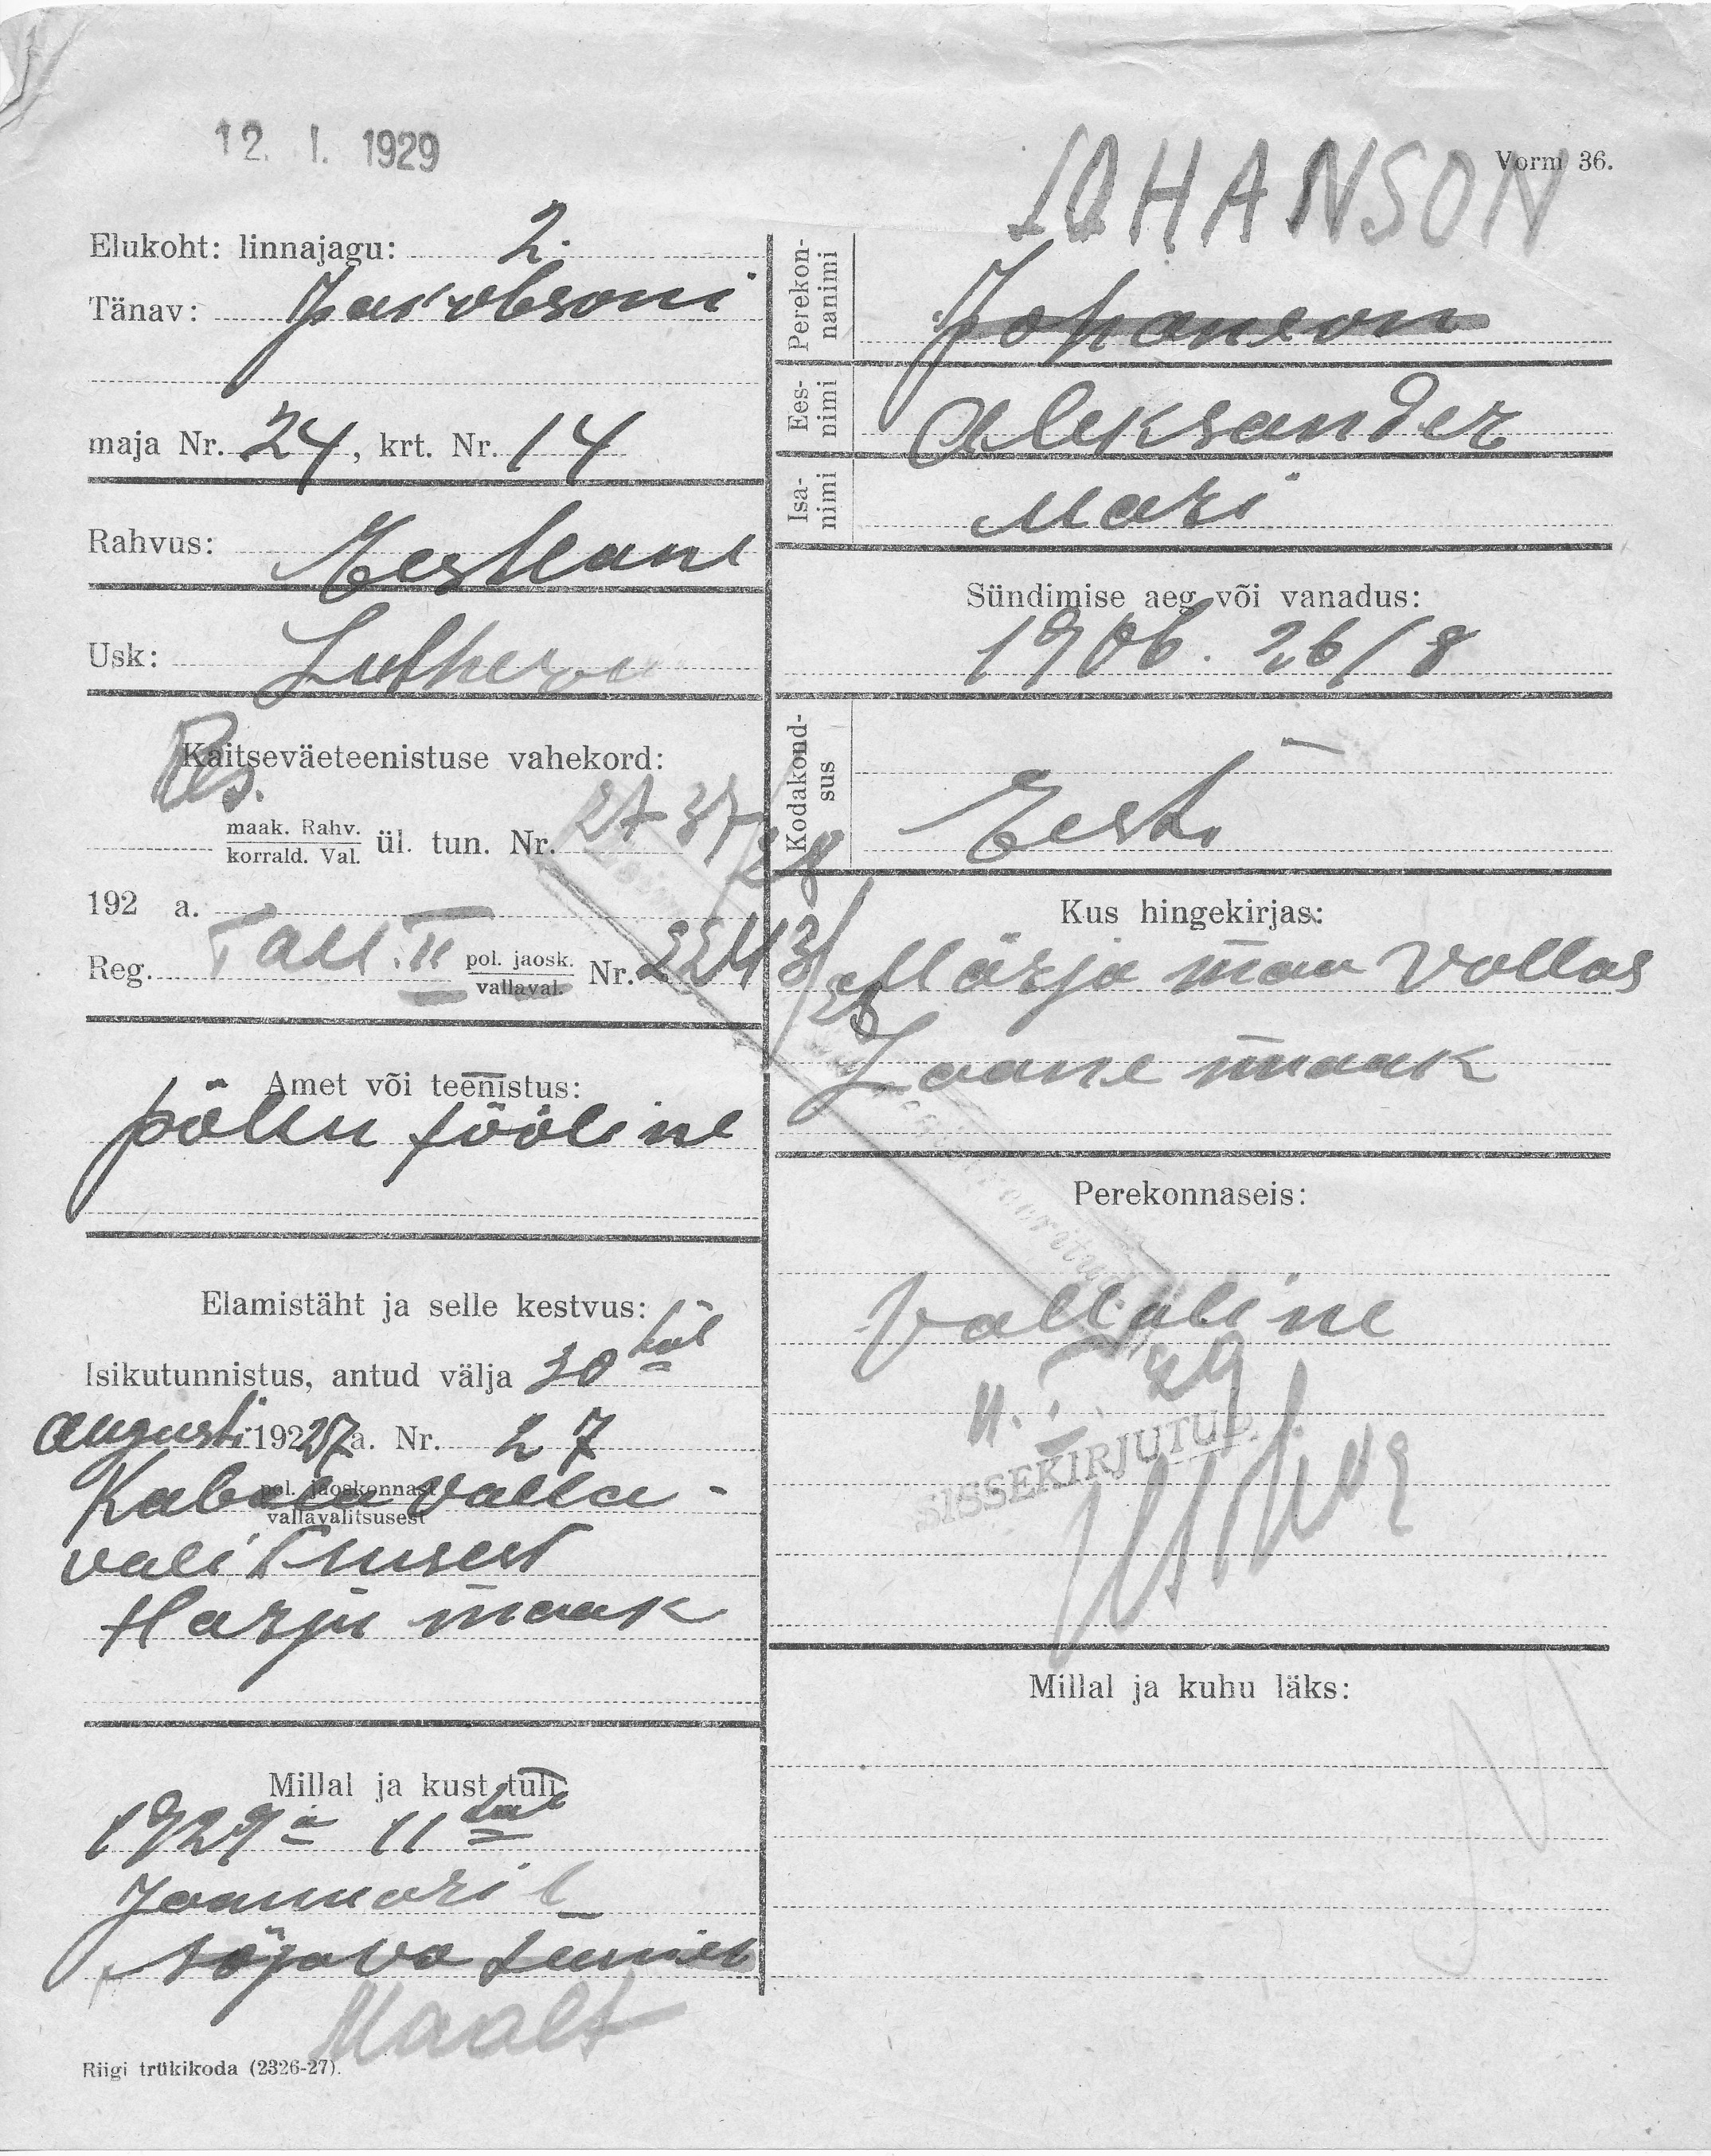 12. I. 1929
JOHANSON
Vorm 36.
Elukoht: linnajagu: 2.
Tänav: Jakobsoni
maja Nr. 24, krt. Nr. 14
Rahvus: Eestlane
Usk: Lutheru
Res.
Kaitseväeteenistuse vahekord:
maak. Rahv.
korrald. Val. ül. tun. Nr. 2737/28
192 a.
Reg. Tall. II pol. jaosk.
vallaval. Nr. 2243/28
Amet või teenistus:
põllu tööline
Elamistäht ja selle kestvus:
Isikutunnistus, antud välja 30 nal
Augusti 1927 a. Nr. 27
pol. jaoskonnast
Kabala valla-
vallavalitsusest
valitsusest
Harju maak
Millal ja kust tuli
1929 a 11 mal
Jaanuaril
sõjava teenist
Maalt
Riigi trükikoda (2326-27).
Perekon-
nanimi
Johanson
Ees-
nimi
Aleksander
Isa-
nimi
Mari
Sündimise aeg või vanadus:
1906. 26/8
Kodakond-
sus
Eesti
Kus hingekirjas:
Märjamaa vallas
Läänemaak
Perekonnaseis:
Vallaline
11. I. 29
SISSEKIRJUTUD.
Millal ja kuhu läks: